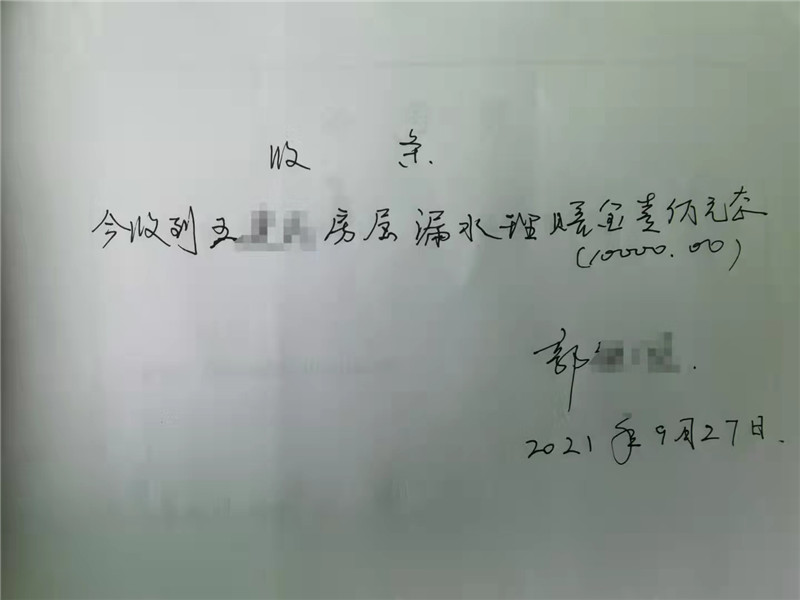 收 条.
今收到王 房屋漏水理赔金壹仟元整
(10000.00)
郭 .
2021年9月27日.